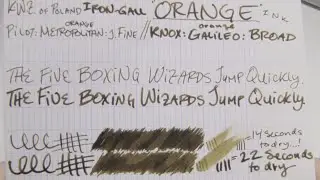 KWZ of POLAND IRON-GALL "ORANGE" INK
ORANGE
PILOT: METROPOLITAN: J. FINE // KNOX: GALILEO: BROAD
orange
THE FIVE BOXING WIZARDS JUMP QUICKLY.
THE FIVE BOXING WIZARDS JUMP QUICKLY
=14 SECONDS
to dry...!
= 22 SECONDS
to dry